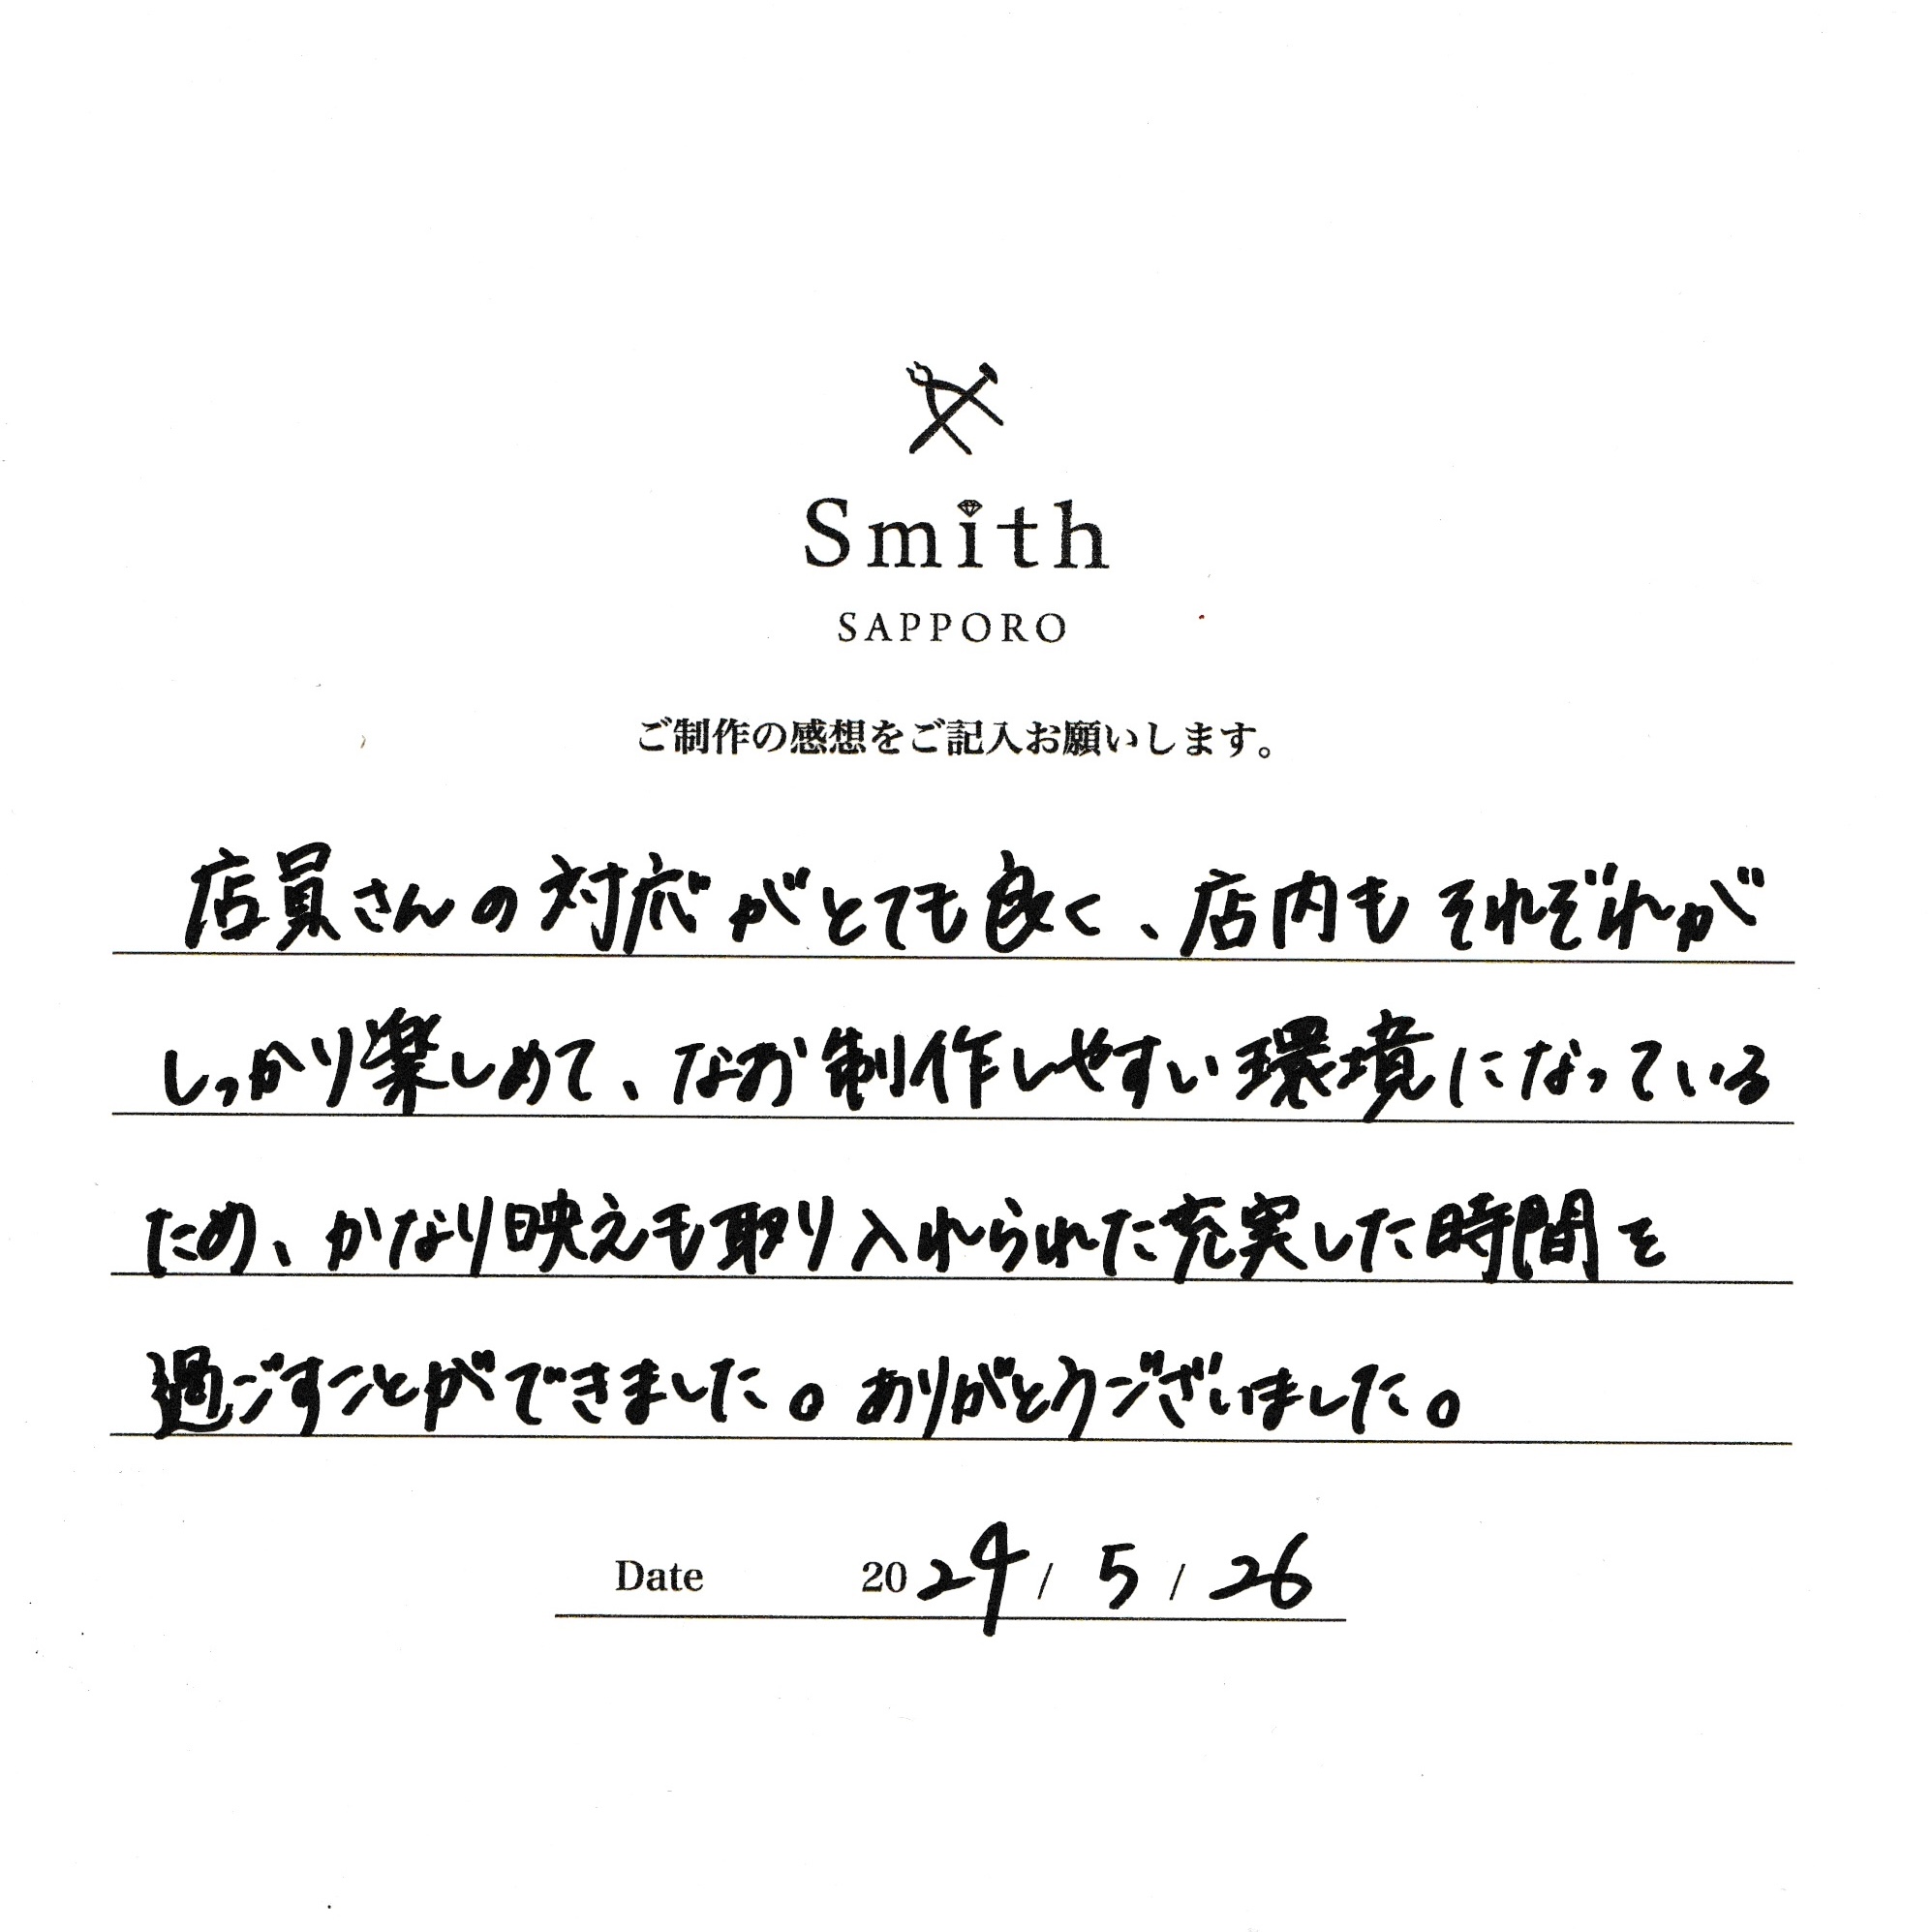 Smith
SAPPORO
ご制作の感想をご記入お願いします。
店員さんの対応がとても良く、店内もそれぞれが
しっかり楽しめて、なお制作しやすい環境になっている
ため、かなり映えも取り入れられた充実した時間を
過ごすことができました。ありがとうございました。
Date 2024 / 5 / 26